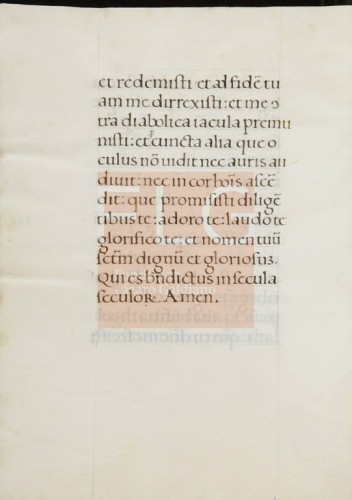 et redemisti et ad fidē tu
am me dirrexisti: et me ↄ
tra diabolica iacula premu
nisti: et cuncta alia que o
culus nō uidit nec auris au
diuit: nec in cor hoīs ascē
dit: que promisisti diligē
tibus te: adoro te: laudo te
glorifico te: et nomen tuū
sctm̄ dignū et gloriosuȝ.
Qui es bn̄dictus in secula
seculoꝝ. Amen.